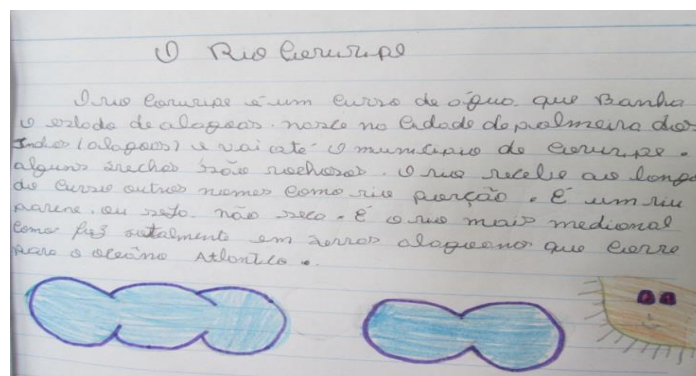 O Rio Coruripe
O rio Coruripe é um curso de água que Banha
o estado de alagoas. nasce na cidade de palmeira dos
Indios (alagoas) e vai até o município de Coruripe.
alguns trechos são rochosos. O rio recebe ao longo
do curso outros nomes como riu purção. É um riu
parene, ou seja, não seca. É o rio mais medional
como foz totalmente em terras alagoano que corre
para o oceâno Atlantico.